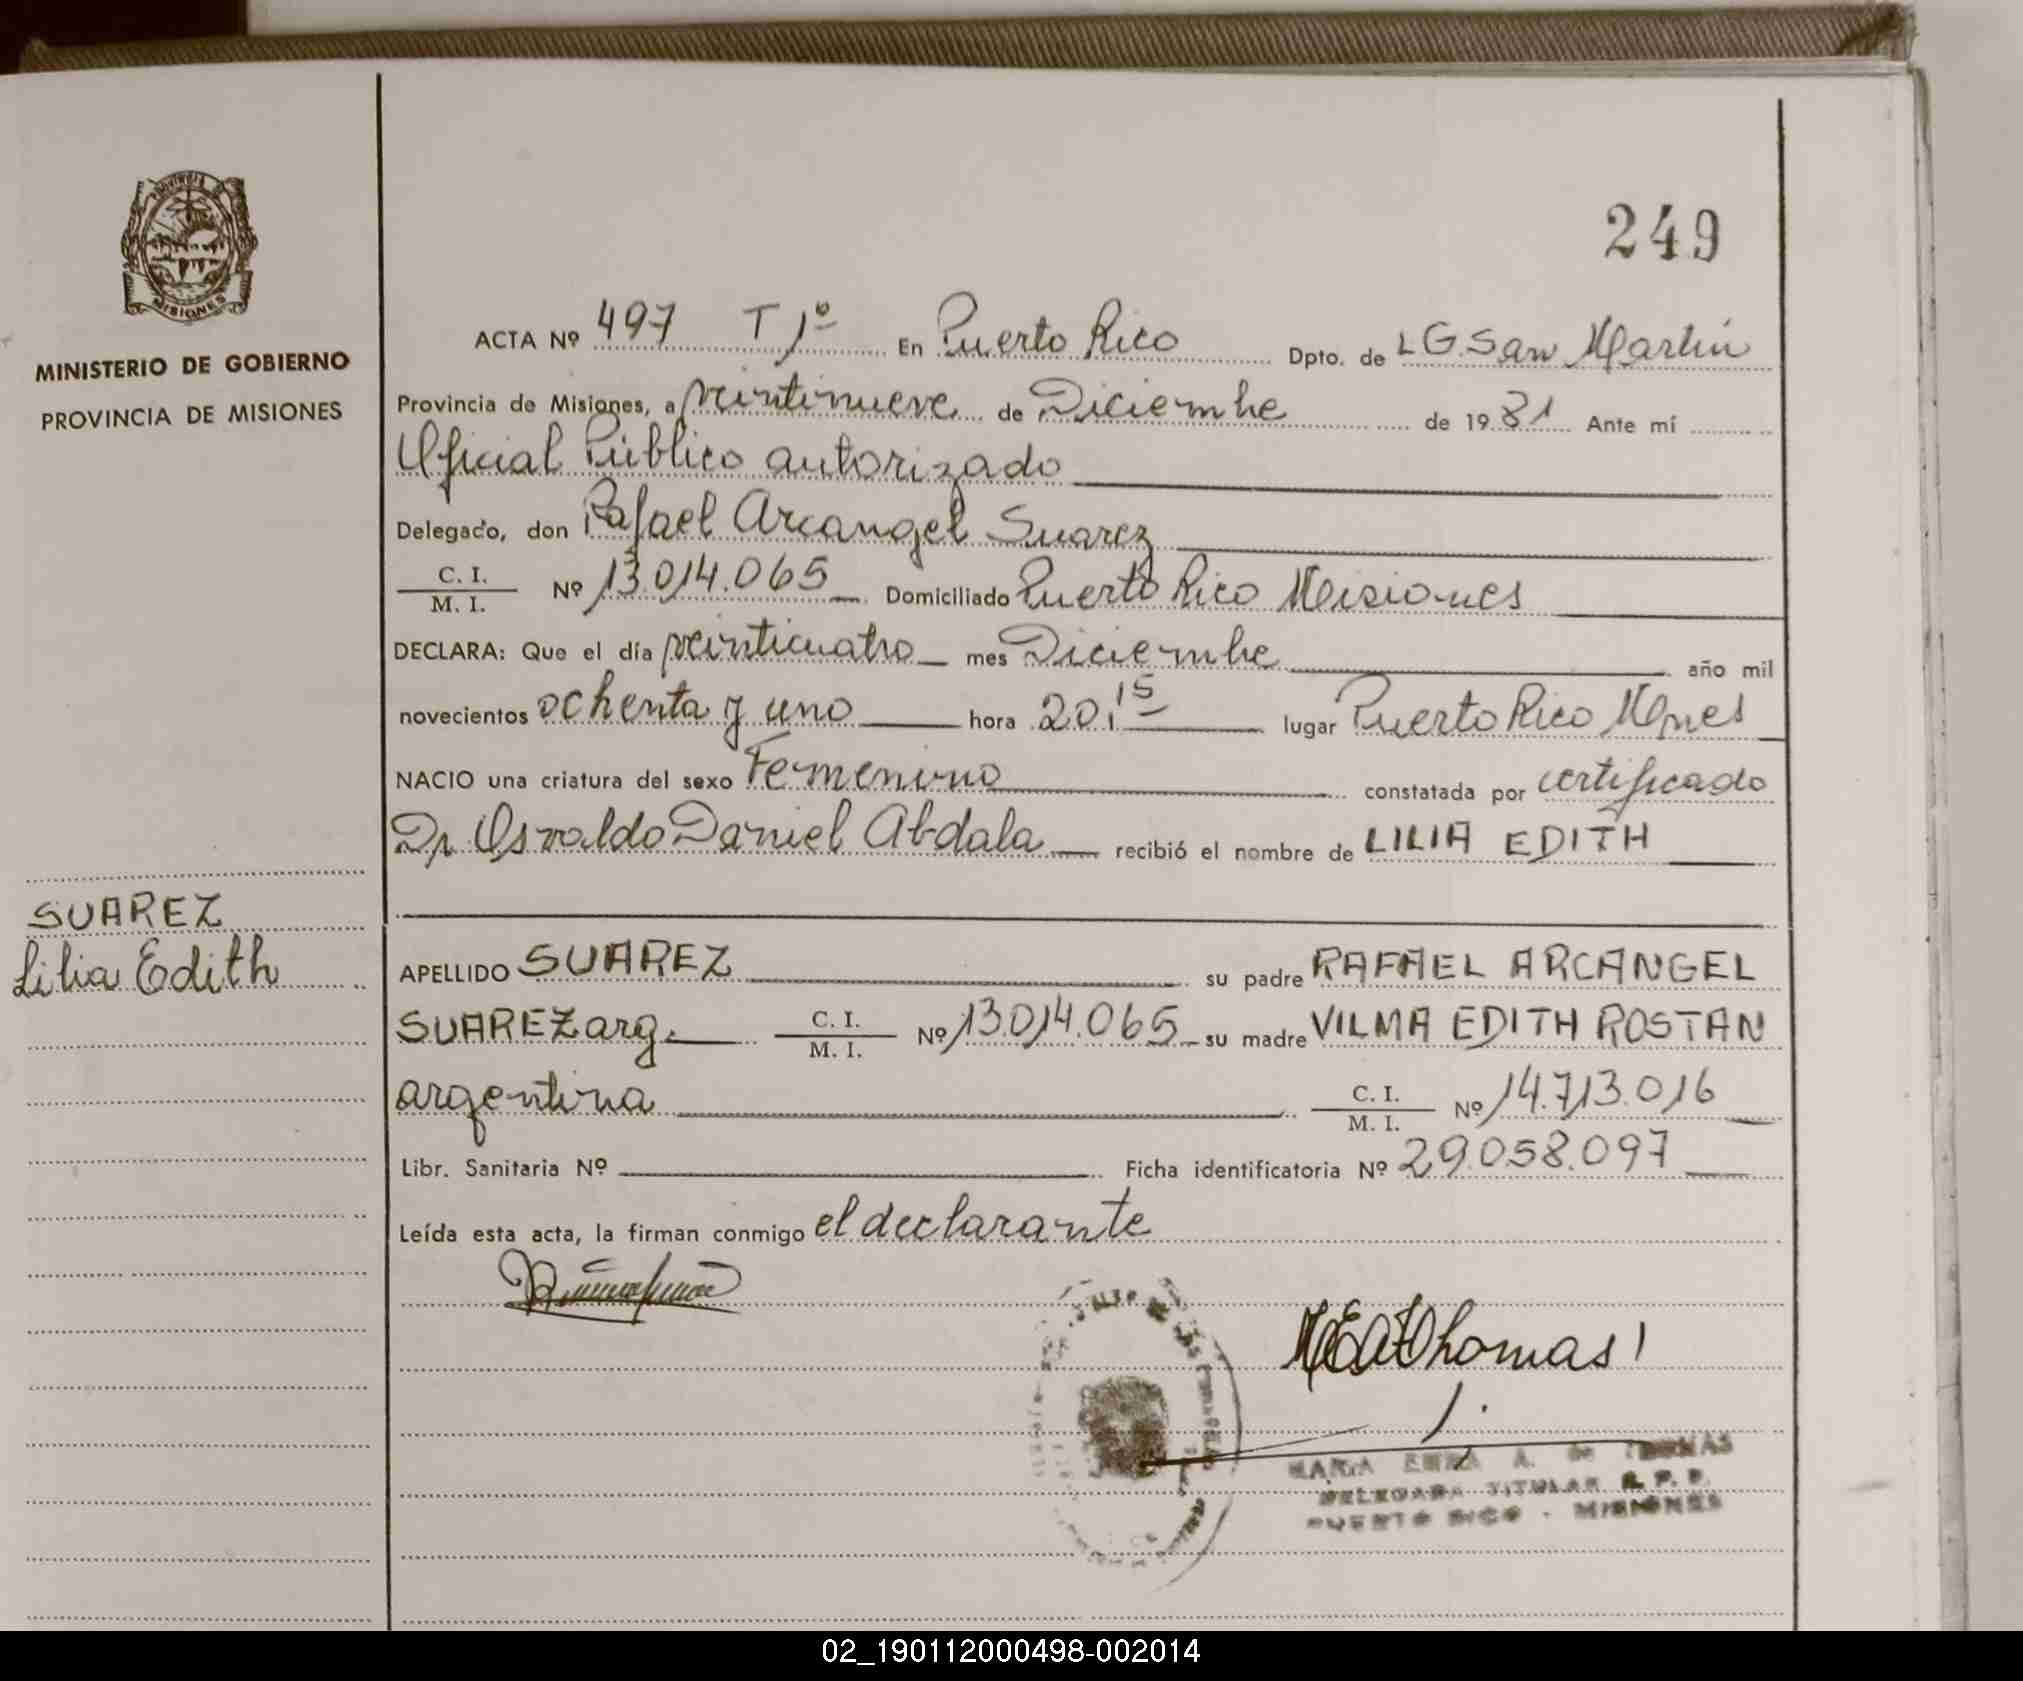 249
MINISTERIO DE GOBIERNO
PROVINCIA DE MISIONES
ACTA Nº 497 T 1º En Puerto Rico Dpto. de LG.San Martín
Provincia de Misiones, a veintinueve de Diciembre de 1981 Ante mí
Oficial Público autorizado
Delegado, don Rafael Arcangel Suarez
C. I.
M. I. Nº 13.014.065 Domiciliado Puerto Rico Misiones
DECLARA: Que el día veinticuatro mes Diciembre año mil
novecientos ochenta y uno hora 20,15 lugar Puerto Rico Mnes
NACIO una criatura del sexo Femenino constatada por certificado
Dr Osvaldo Daniel Abdala recibió el nombre de LILIA EDITH
SUAREZ
Lilia Edith
APELLIDO SUAREZ su padre RAFAEL ARCANGEL
SUAREZ arg. C. I. M. I. Nº 13.014.065 su madre VILMA EDITH ROSTAN
argentina C. I. M. I. Nº 14.713.016
Libr. Sanitaria Nº Ficha identificatoria Nº 29.058.097
Leída esta acta, la firman conmigo el declarante
MARIA A. de THOMAS
DELEGADA TITULAR R. P. P.
PUERTO RICO - MISIONES
02_190112000498-002014